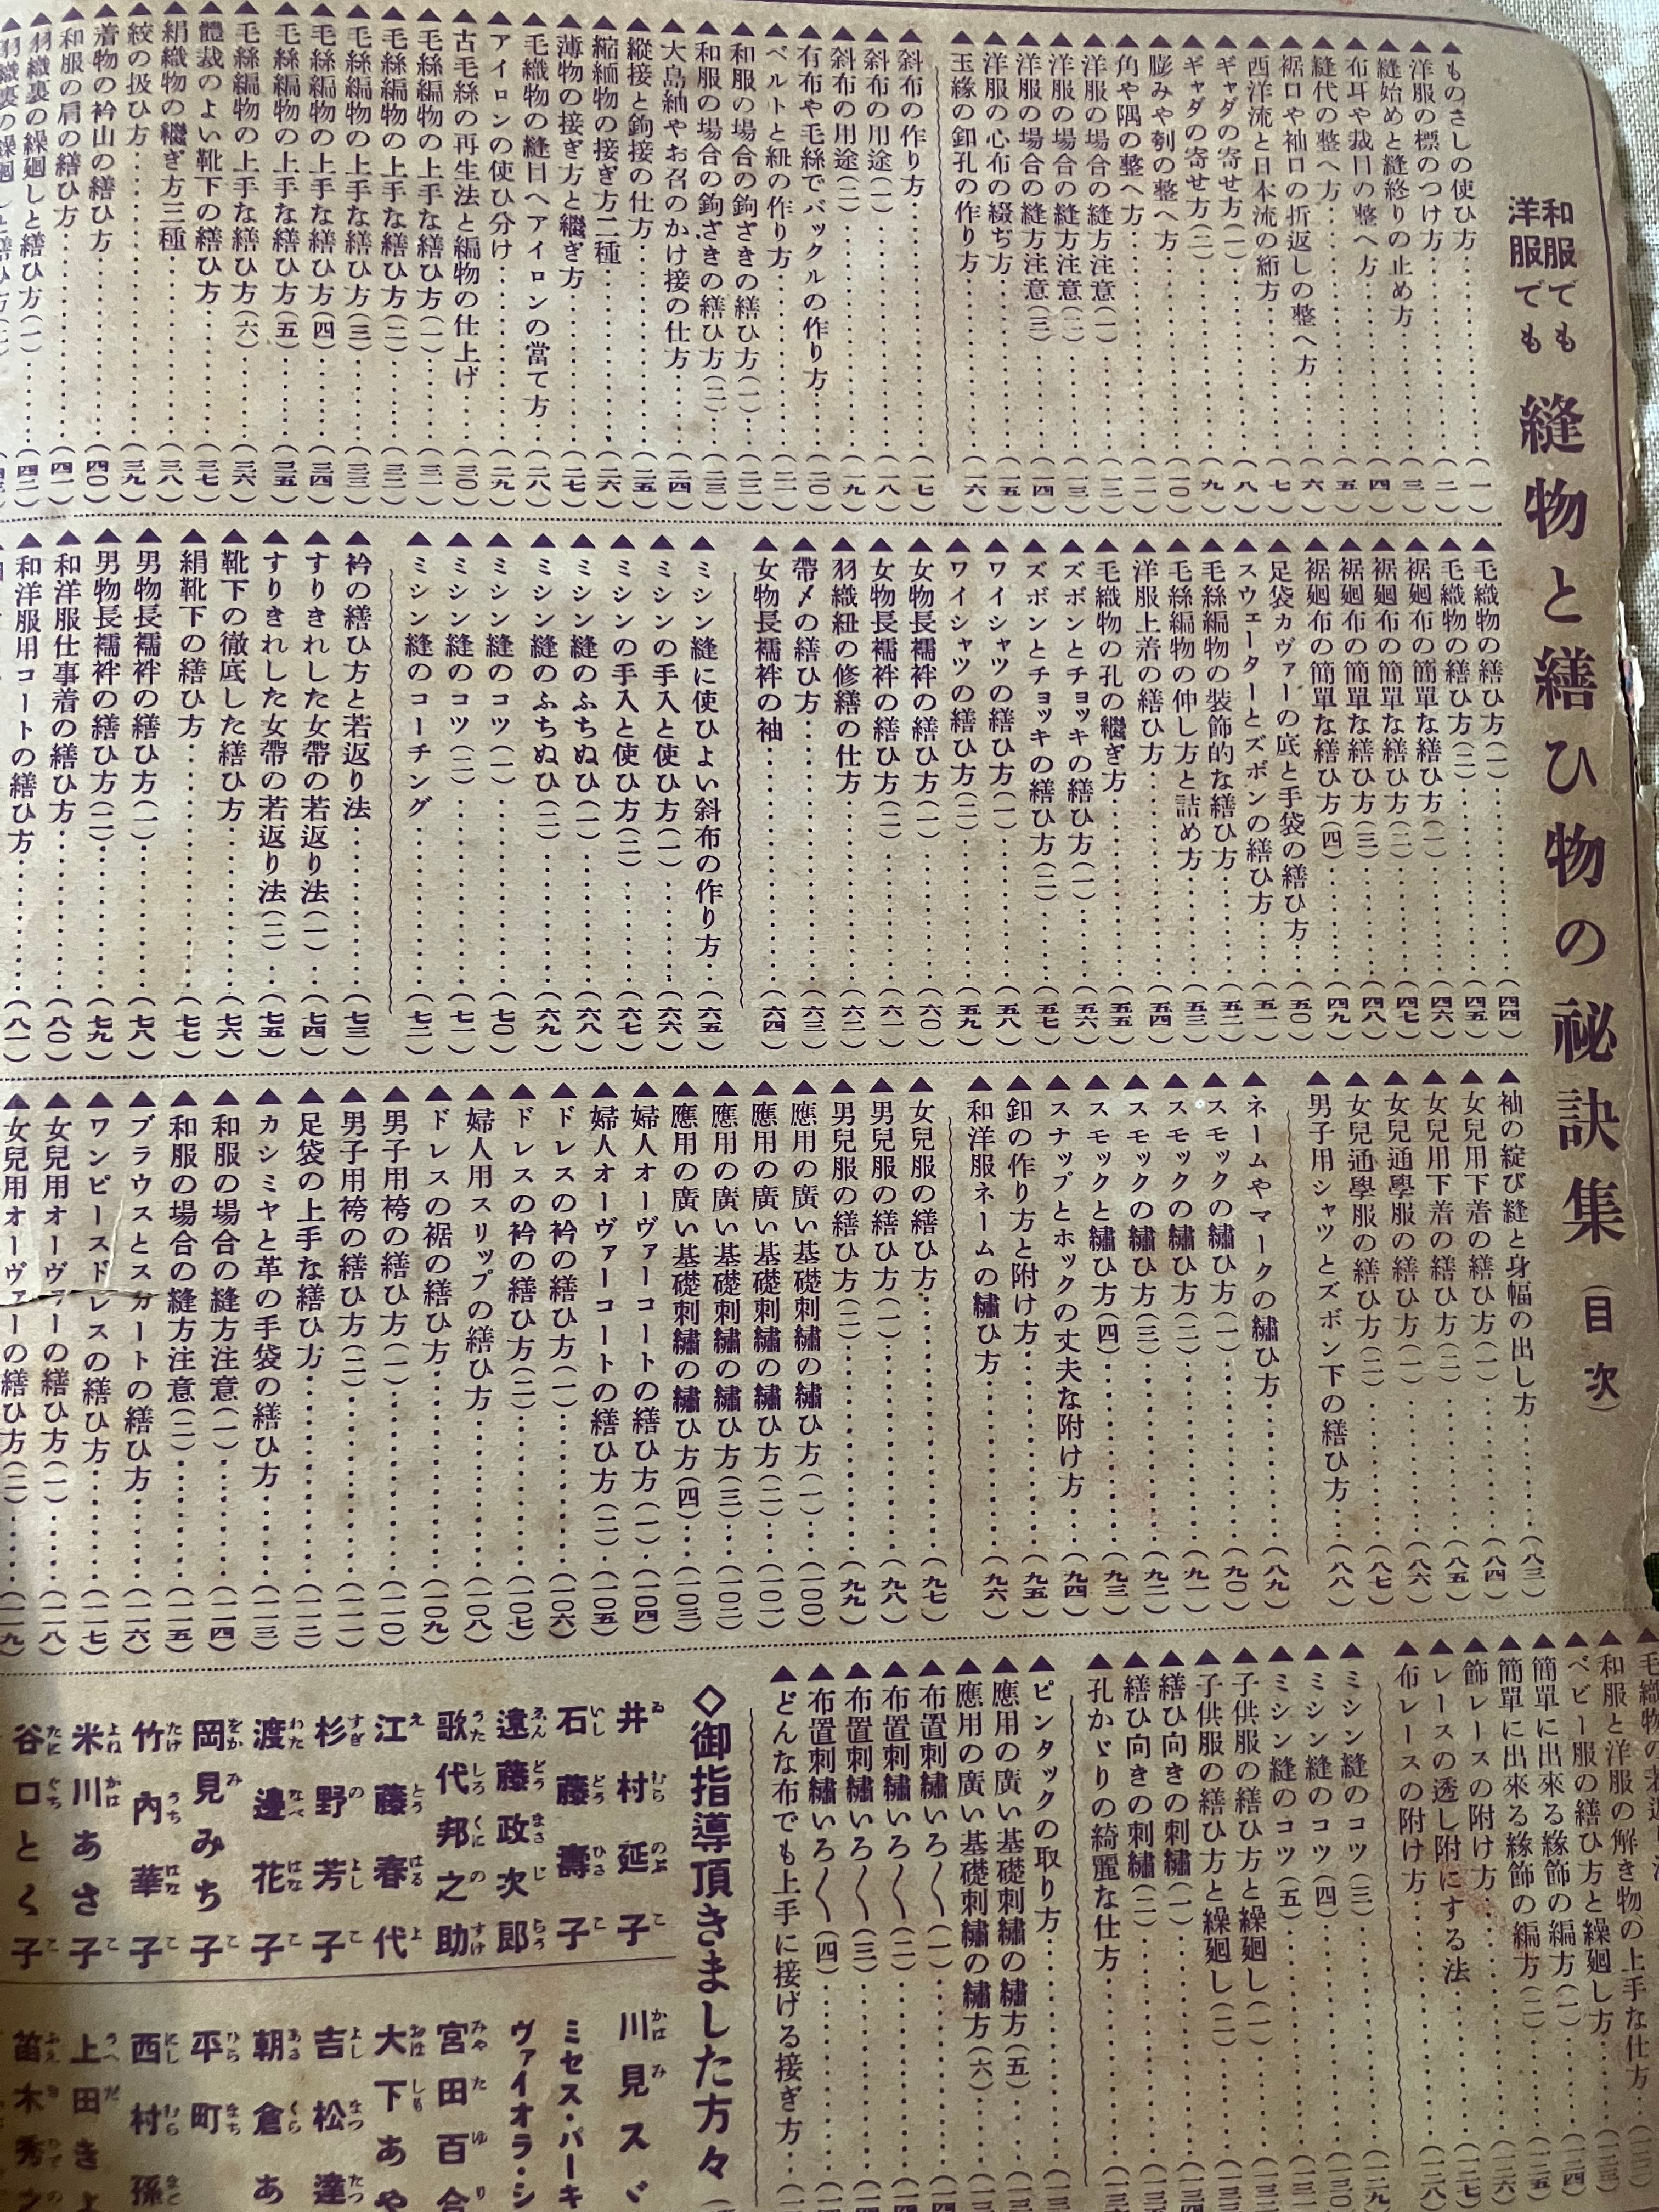 和服でも
洋服でも
縫物と繕ひ物の祕訣集（目次）
▲ものさしの使ひ方……（一）
▲洋服の標のつけ方……（二）
▲縫始めと縫終りの止め方……（三）
▲布耳や裁目の整へ方……（四）
▲縫代の整へ方……（五）
▲裾口や袖口の折返しの整へ方……（六）
▲西洋流と日本流の絎方……（七）
▲ギャダの寄せ方（一）……（八）
▲ギャダの寄せ方（二）……（九）
▲膨みや刳の整へ方……（一〇）
▲角や隅の整へ方……（一一）
▲洋服の場合の縫方注意（一）……（一二）
▲洋服の場合の縫方注意（二）……（一三）
▲洋服の場合の縫方注意（三）……（一四）
▲洋服の心布の綴ぢ方……（一五）
▲玉緣の釦孔の作り方……（一六）
▲斜布の作り方……（一七）
▲斜布の用途（一）……（一八）
▲斜布の用途（二）……（一九）
▲有布や毛絲でバックルの作り方……（二〇）
▲ベルトと紐の作り方……（二一）
▲和服の場合の鉤ざきの繕ひ方（一）……（二二）
▲和服の場合の鉤ざきの繕ひ方（二）……（二三）
▲大島紬やお召のかけ接の仕方……（二四）
▲縱接と鉤接の仕方……（二五）
▲縮緬物の接ぎ方二種……（二六）
▲薄物の接ぎ方と繼ぎ方……（二七）
▲毛織物の縫目へアイロンの當て方……（二八）
▲アイロンの使ひ分け……（二九）
▲古毛絲の再生法と編物の仕上げ……（三〇）
▲毛絲編物の上手な繕ひ方（一）……（三一）
▲毛絲編物の上手な繕ひ方（二）……（三二）
▲毛絲編物の上手な繕ひ方（三）……（三三）
▲毛絲編物の上手な繕ひ方（四）……（三四）
▲毛絲編物の上手な繕ひ方（五）……（三五）
▲毛絲編物の上手な繕ひ方（六）……（三六）
▲體裁のよい靴下の繕ひ方……（三七）
▲絹織物の繼ぎ方三種……（三八）
▲絞の扱ひ方……（三九）
▲着物の衿山の繕ひ方……（四〇）
▲和服の肩の繕ひ方……（四一）
▲羽織裏の繰廻しと繕ひ方（一）……（四二）
▲毛織物の繕ひ方（一）……（四四）
▲毛織物の繕ひ方（二）……（四五）
▲裾廻布の簡單な繕ひ方（一）……（四六）
▲裾廻布の簡單な繕ひ方（二）……（四七）
▲裾廻布の簡單な繕ひ方（三）……（四八）
▲裾廻布の簡單な繕ひ方（四）……（四九）
▲足袋カヴァーの底と手袋の繕ひ方……（五〇）
▲スウェーターとズボンの繕ひ方……（五一）
▲毛絲編物の裝飾的な繕ひ方……（五二）
▲毛絲編物の伸し方と詰め方……（五三）
▲洋服上着の繕ひ方……（五四）
▲毛織物の孔の繼ぎ方……（五五）
▲ズボンとチョッキの繕ひ方（一）……（五六）
▲ズボンとチョッキの繕ひ方（二）……（五七）
▲ワイシャツの繕ひ方（一）……（五八）
▲ワイシャツの繕ひ方（二）……（五九）
▲女物長襦袢の繕ひ方（一）……（六〇）
▲女物長襦袢の繕ひ方（二）……（六一）
▲羽織紐の修繕の仕方……（六二）
▲帶〆の繕ひ方……（六三）
▲女物長襦袢の袖……（六四）
▲ミシン縫に使ひよい斜布の作り方……（六五）
▲ミシンの手入と使ひ方（一）……（六六）
▲ミシンの手入と使ひ方（二）……（六七）
▲ミシン縫のふちぬひ（一）……（六八）
▲ミシン縫のふちぬひ（二）……（六九）
▲ミシン縫のコツ（一）……（七〇）
▲ミシン縫のコツ（二）……（七一）
▲ミシン縫のコーチング……（七二）
▲衿の繕ひ方と若返り法……（七三）
▲すりきれした女帶の若返り法（一）……（七四）
▲すりきれした女帶の若返り法（二）……（七五）
▲靴下の徹底した繕ひ方……（七六）
▲絹靴下の繕ひ方……（七七）
▲男物長襦袢の繕ひ方（一）……（七八）
▲男物長襦袢の繕ひ方（二）……（七九）
▲和洋服仕事着の繕ひ方……（八〇）
▲和洋服用コートの繕ひ方……（八一）
▲袖の綻び縫と身幅の出し方……（八三）
▲女兒用下着の繕ひ方（一）……（八四）
▲女兒用下着の繕ひ方（二）……（八五）
▲女兒通學服の繕ひ方（一）……（八六）
▲女兒通學服の繕ひ方（二）……（八七）
▲男子用シャツとズボン下の繕ひ方……（八八）
▲ネームやマークの繡ひ方……（八九）
▲スモックの繡ひ方（一）……（九〇）
▲スモックの繡ひ方（二）……（九一）
▲スモックの繡ひ方（三）……（九二）
▲スモックと繡ひ方（四）……（九三）
▲スナップとホックの丈夫な附け方……（九四）
▲釦の作り方と附け方……（九五）
▲和洋服ネームの繡ひ方……（九六）
▲女兒服の繕ひ方……（九七）
▲男兒服の繕ひ方（一）……（九八）
▲男兒服の繕ひ方（二）……（九九）
▲應用の廣い基礎刺繡の繡ひ方（一）……（一〇〇）
▲應用の廣い基礎刺繡の繡ひ方（二）……（一〇一）
▲應用の廣い基礎刺繡の繡ひ方（三）……（一〇二）
▲應用の廣い基礎刺繡の繡ひ方（四）……（一〇三）
▲婦人オーヴァーコートの繕ひ方（一）……（一〇四）
▲婦人オーヴァーコートの繕ひ方（二）……（一〇五）
▲ドレスの衿の繕ひ方（一）……（一〇六）
▲ドレスの衿の繕ひ方（二）……（一〇七）
▲婦人用スリップの繕ひ方……（一〇八）
▲ドレスの裾の繕ひ方……（一〇九）
▲男子用袴の繕ひ方（一）……（一一〇）
▲男子用袴の繕ひ方（二）……（一一一）
▲足袋の上手な繕ひ方……（一一二）
▲カシミヤと革の手袋の繕ひ方……（一一三）
▲和服の場合の縫方注意（一）……（一一四）
▲和服の場合の縫方注意（二）……（一一五）
▲ブラウスとスカートの繕ひ方……（一一六）
▲ワンピースドレスの繕ひ方……（一一七）
▲女兒用オーヴァーの繕ひ方（一）……（一一八）
▲女兒用オーヴァーの繕ひ方（二）……（一一九）
▲和服と洋服の解き物の上手な仕方
▲ベビー服の繕ひ方と繰廻し方……（一二四）
▲簡單に出來る緣飾の編方（一）……（一二五）
▲簡單に出來る緣飾の編方（二）……（一二六）
▲飾レースの附け方……（一二七）
▲レースの透し附にする法……（一二八）
▲布レースの附け方……（一二九）
▲ミシン縫のコツ（三）……（一三〇）
▲ミシン縫のコツ（四）
▲ミシン縫のコツ（五）
▲子供服の繕ひ方と繰廻し（一）
▲子供服の繕ひ方と繰廻し（二）
▲繕ひ向きの刺繡（一）
▲繕ひ向きの刺繡（二）
▲孔かゞりの綺麗な仕方
▲ピンタックの取り方
▲應用の廣い基礎刺繡の繡方（五）
▲應用の廣い基礎刺繡の繡方（六）
▲布置刺繡いろ〱（一）
▲布置刺繡いろ〱（二）
▲布置刺繡いろ〱（三）
▲布置刺繡いろ〱（四）
▲どんな布でも上手に接げる接ぎ方
◇御指導頂きました方々
井村延子
石藤壽子
遠藤政次郎
歌代邦之助
江藤春代
杉野芳子
渡邊花子
岡見みち子
竹內華子
米川あさ子
谷口とく子
川見スヾ
ミセス・パーキ
ヴァイオラ・シ
宮田百合
大下あや
吉松達
朝倉あ
平町
西村孫
上田きよ
笛木秀之